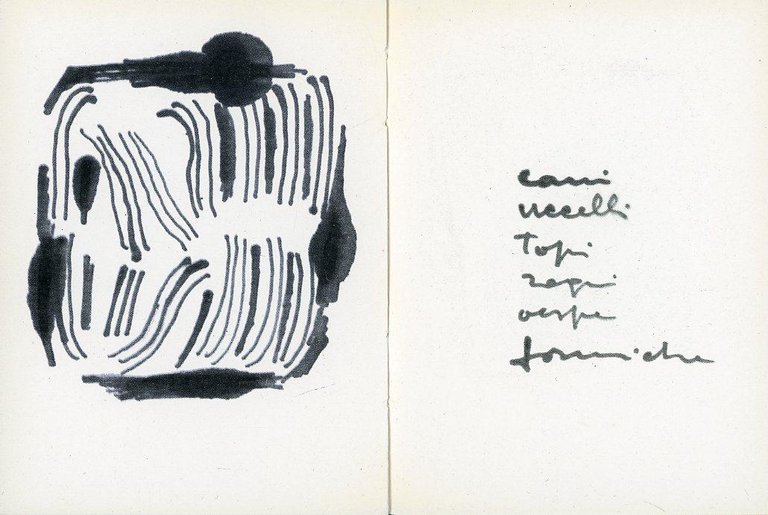 cani
uccelli
topi
ragni
vespe
formiche